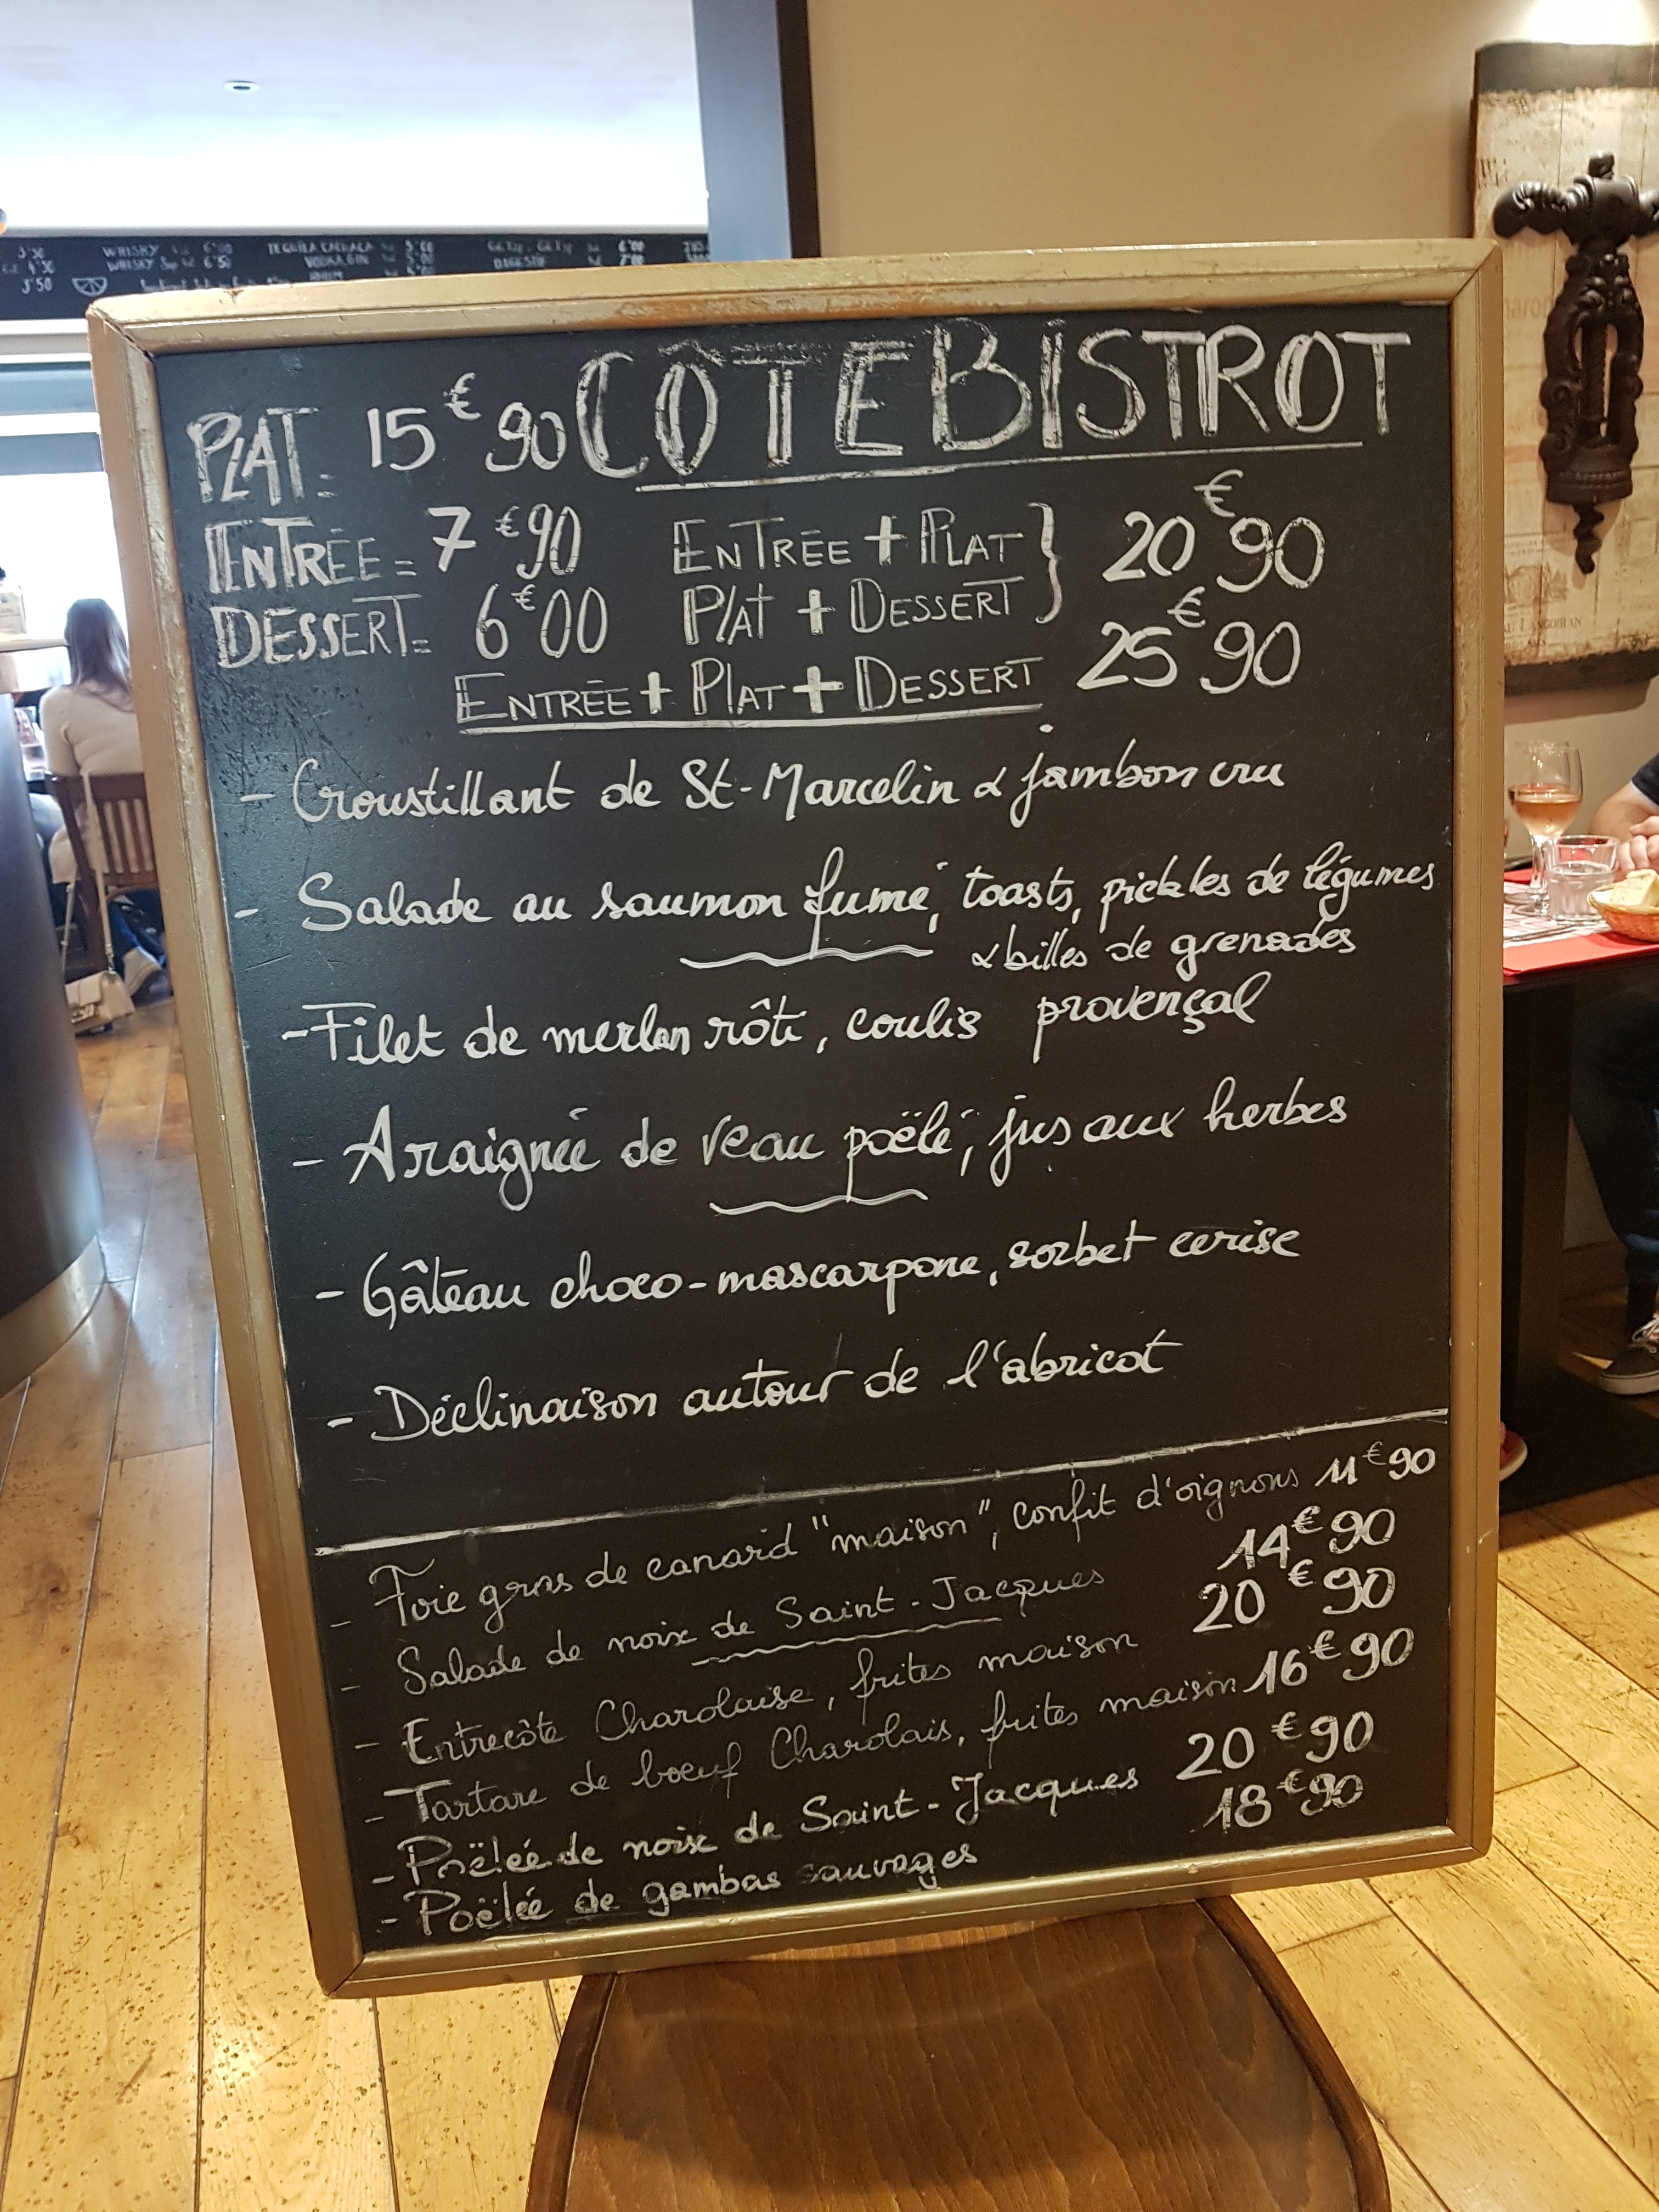 WHISKY
WHISKY Sup
VODKA GIN
DIGESTIF
CÔTÉ BISTROT
PLAT = 15€90
ENTRÉE = 7€90
DESSERT = 6€00
ENTRÉE + PLAT } 20€90
PLAT + DESSERT
ENTRÉE + PLAT + DESSERT 25€90
- Croustillant de St-Marcelin & jambon cru
- Salade au saumon fumé, toasts, pickles de légumes
& billes de grenades
- Filet de merlan rôti, coulis provençal
- Araignée de veau poëlé, jus aux herbes
- Gâteau choco-mascarpone, sorbet cerise
- Déclinaison autour de l'abricot
- Foie gras de canard "maison", confit d'oignons 11€90
- Salade de noix de Saint-Jacques 14€90
- Entrecôte Charolaise, frites maison 20€90
- Tartare de boeuf Charolais, frites maison 16€90
- Poëlée de noix de Saint-Jacques 20€90
- Poëlée de gambas sauvages 18€90